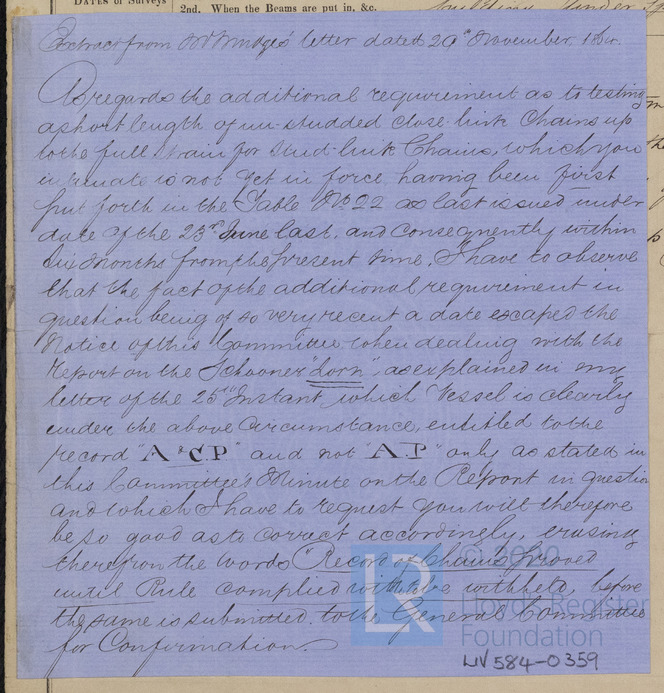 DATES of Surveys
2nd. When the Beams are put in, &c.
Extract from Mr Mudges' letter dated 29th November,
As regards the additional requirement as to testing
a short length of un-studded close-link Chains up
to the full strain for Stud-link Chains, which you
intimate is not yet in force, having been first
put forth in the Table No 22 as last issued under
date of the 23rd June last, and consequently within
six months from the present time, I have to observe
that the fact of the additional requirement in
question being of so very recent a date escaped the
Notice of this Committee when dealing with the
Report on the Schooner "Lorn", as explained in my
letter of the 25th Instant which Vessel is clearly
under the above Circumstance, entitled to the
record "A & CP" and not "A.P" only as stated in
this Committee's Minute on the Report in question
and which I have to request you will therefore
be so good as to correct accordingly, erasing
therefrom the words "Record of Chains Proved
until Rule complied with to be withheld, before
the same is submitted, to the General Committee
for Confirmation.
LR
© 2020
Lloyd's Register
Foundation
LIV 584-0359